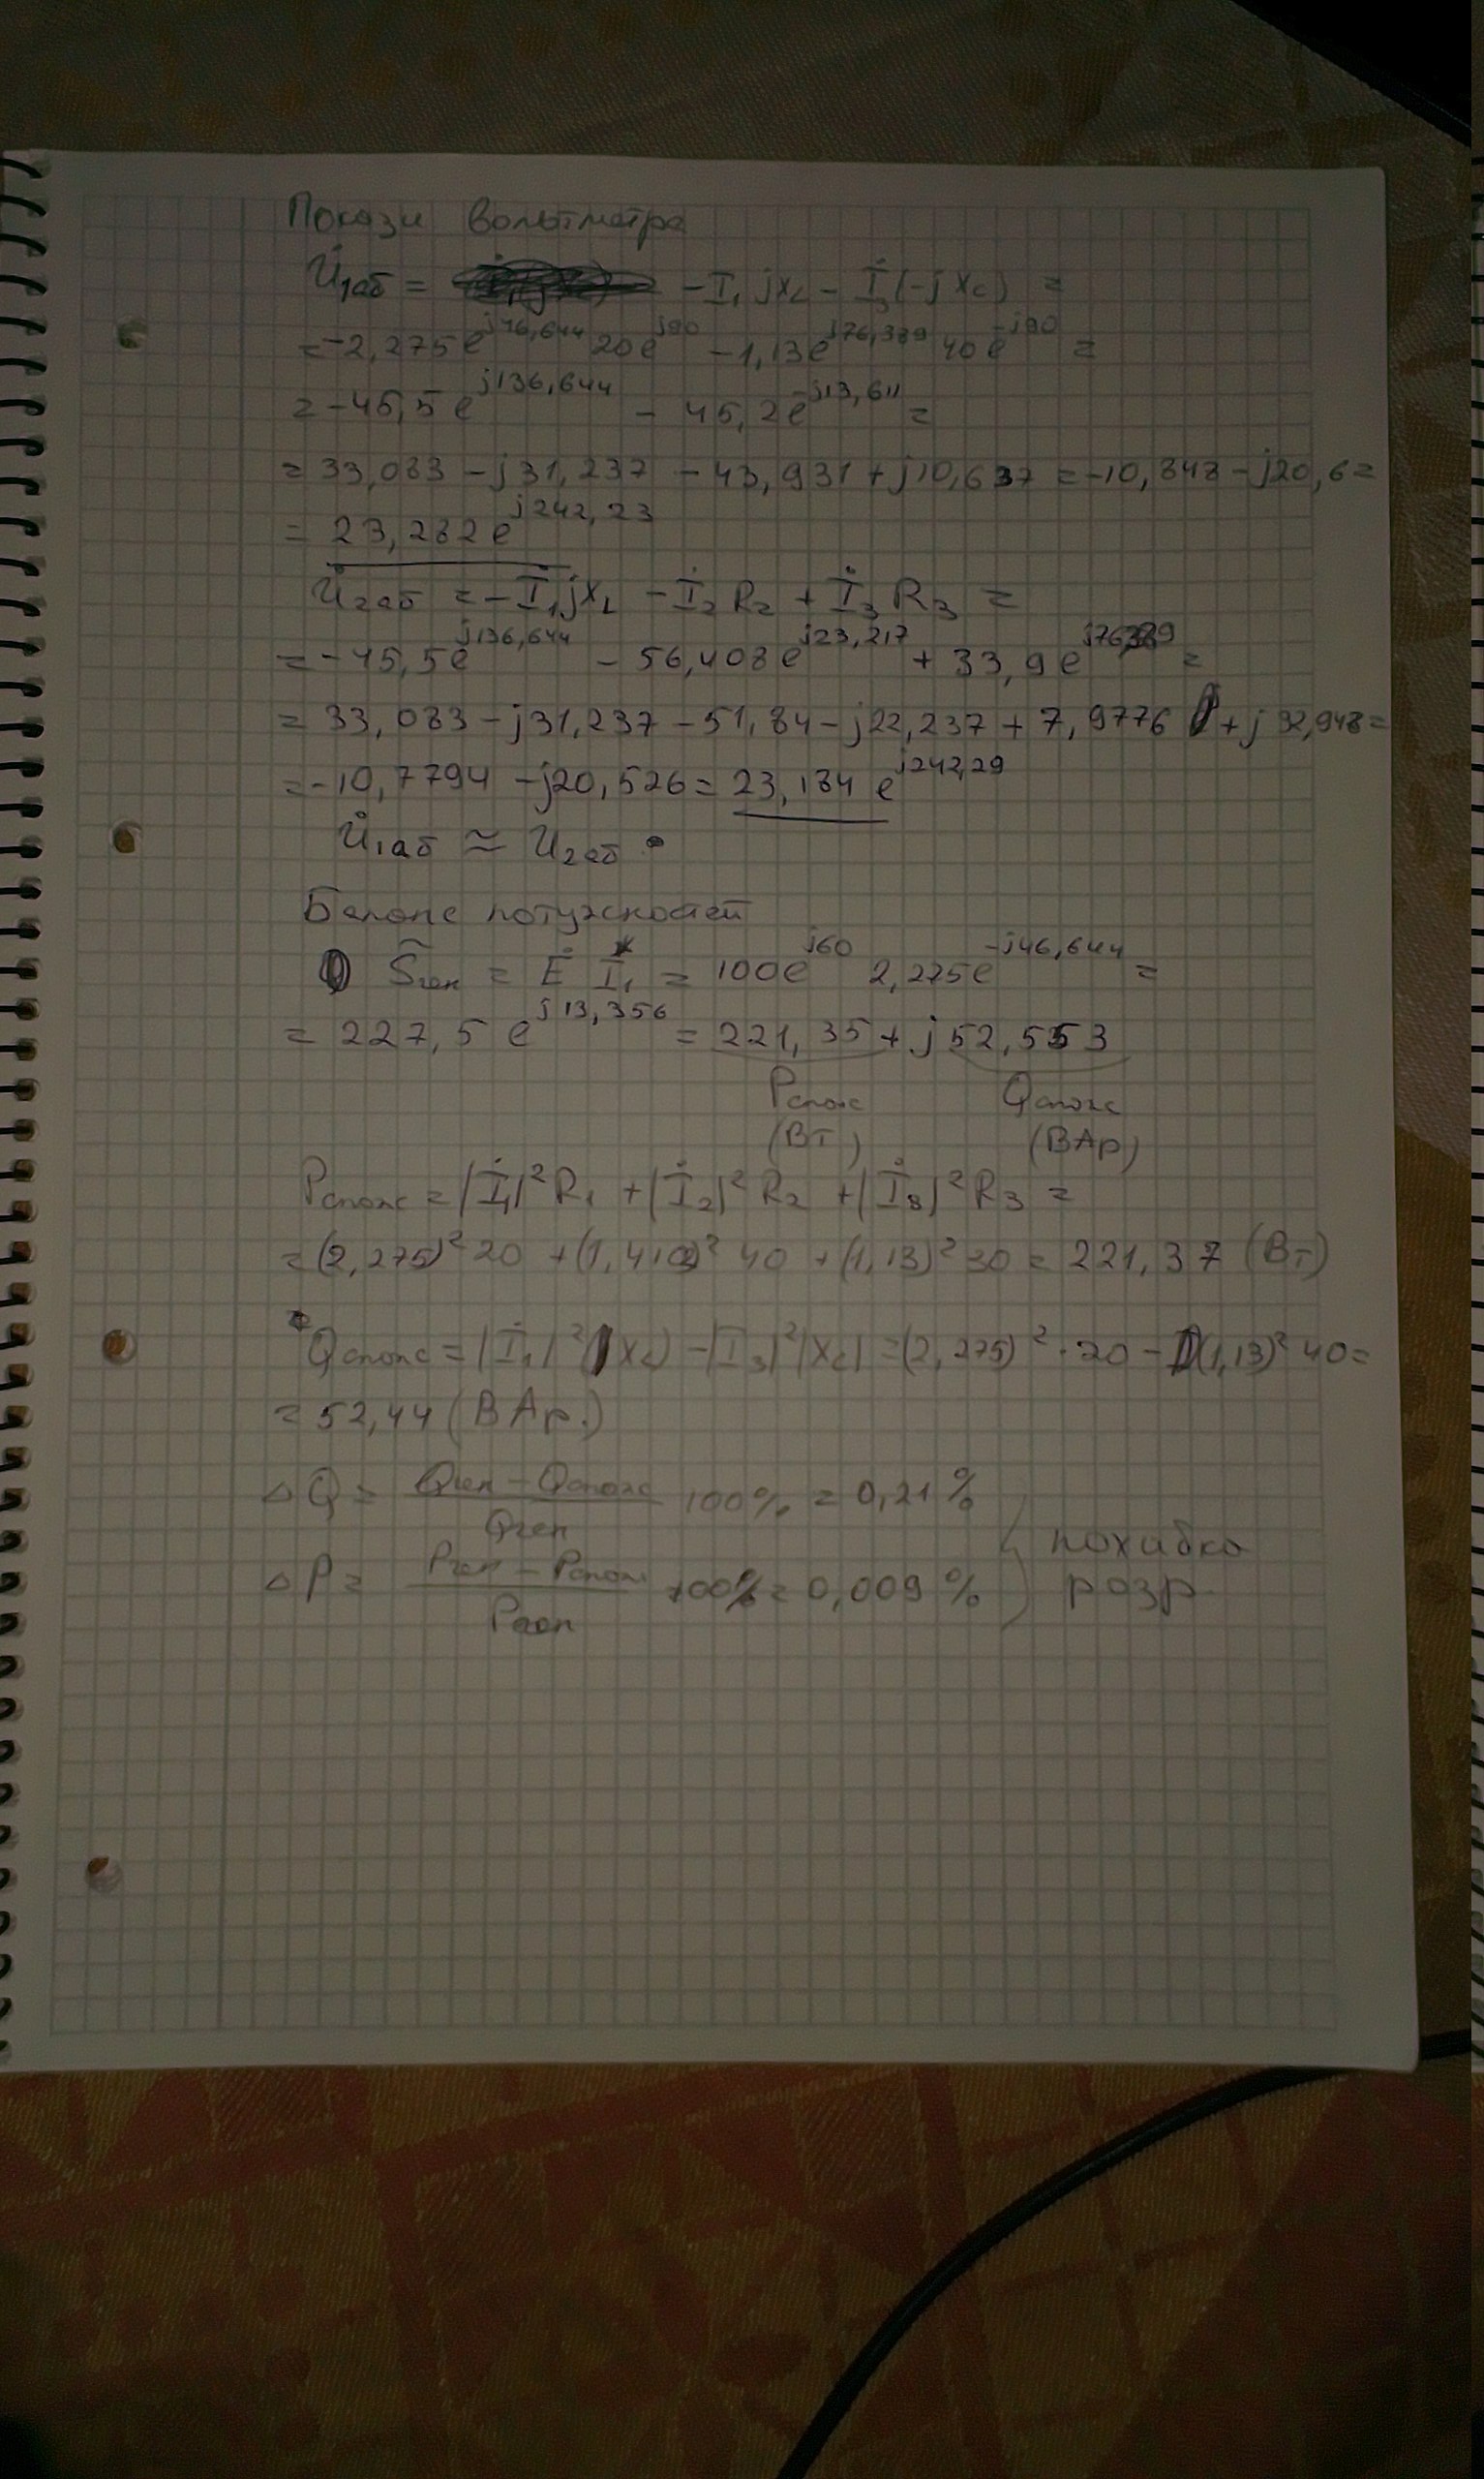 Покази вольтметра
U̇₁аб = -İ₁jxL - İ₃(-jxc) =
= -2,275e^j46,644 20e^j90 - 1,13e^j76,389 40e^-j90 =
= -45,5e^j136,644 - 45,2e^-j13,611 =
= 33,083 - j31,237 - 43,931 + j10,637 = -10,848 - j20,6 =
= 23,282e^j242,23
U̇₂аб = -İ₁jxL - İ₂R₂ + İ₃R₃ =
= -45,5e^j136,644 - 56,408e^j23,217 + 33,9e^j76,389 =
= 33,083 - j31,237 - 51,84 - j22,237 + 7,9776 + j32,948 =
= -10,7794 - j20,526 = 23,184e^j242,29
U̇₁аб ≈ U₂аб
Баланс потужностей
S̃ген = Ė İ₁* = 100e^j60 2,275e^-j46,644 =
= 227,5e^j13,356 = 221,35 + j52,553
Pспож Qспож
(ВТ) (ВАр)
Pспож = |İ₁|²R₁ + |İ₂|²R₂ + |İ₃|²R₃ =
= (2,275)² 20 + (1,410)² 40 + (1,13)² 30 = 221,37 (Вт)
Qспож = |İ₁|²(xL) - |İ₃|²|xc| = (2,275)² · 20 - (1,13)² 40 =
= 52,44 (ВАр.)
ΔQ = (Qген - Qспож)/Qген 100% = 0,21%
ΔP = (Pген - Pспож)/Pген 100% = 0,009%
похибка
розр